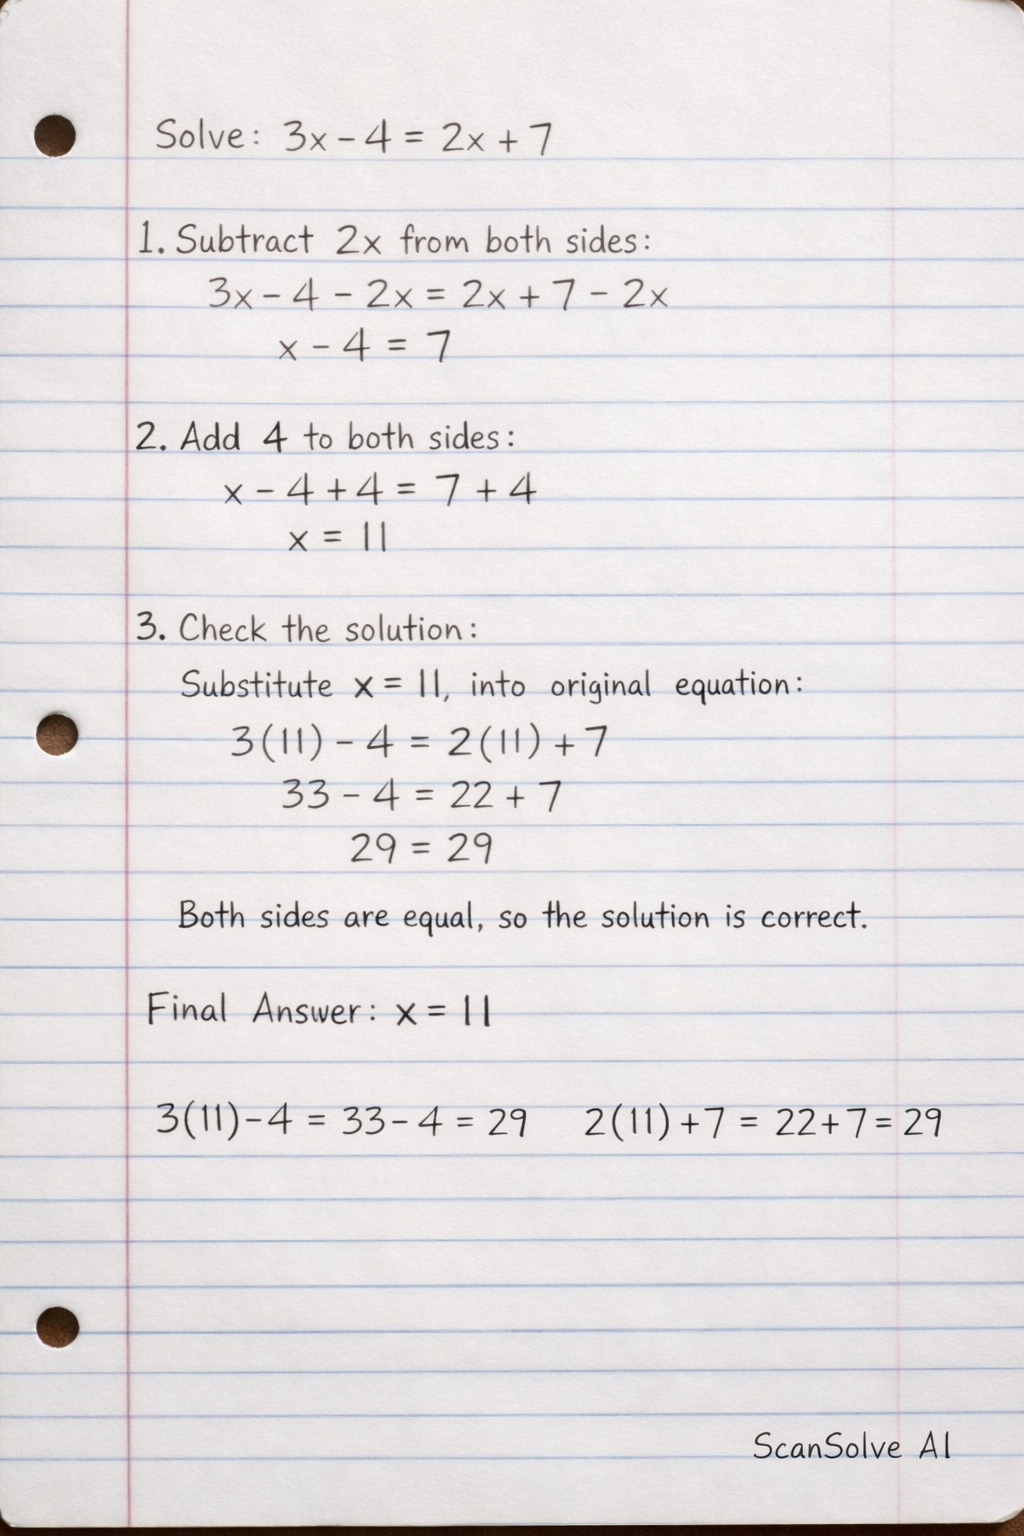 Solve: 3x - 4 = 2x + 7
1. Subtract 2x from both sides:
3x - 4 - 2x = 2x + 7 - 2x
x - 4 = 7
2. Add 4 to both sides:
x - 4 + 4 = 7 + 4
x = 11
3. Check the solution:
Substitute x = 11, into original equation:
3(11) - 4 = 2(11) + 7
33 - 4 = 22 + 7
29 = 29
Both sides are equal, so the solution is correct.
Final Answer: x = 11
3(11) - 4 = 33 - 4 = 29 2(11) + 7 = 22 + 7 = 29
ScanSolve AI